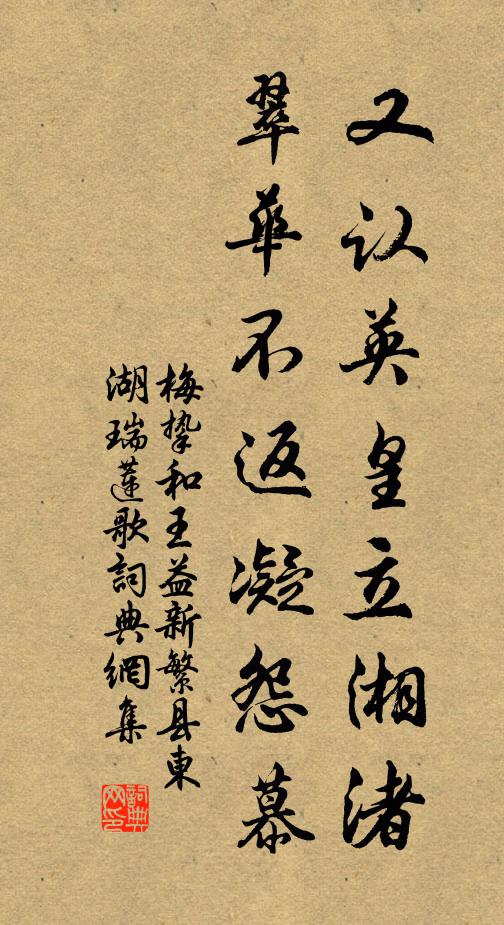 又认英皇立湘渚
翠华不返凝怨慕
梅挚和王益新繁县東
湖瑞莲歌詞典網集
詞典網印